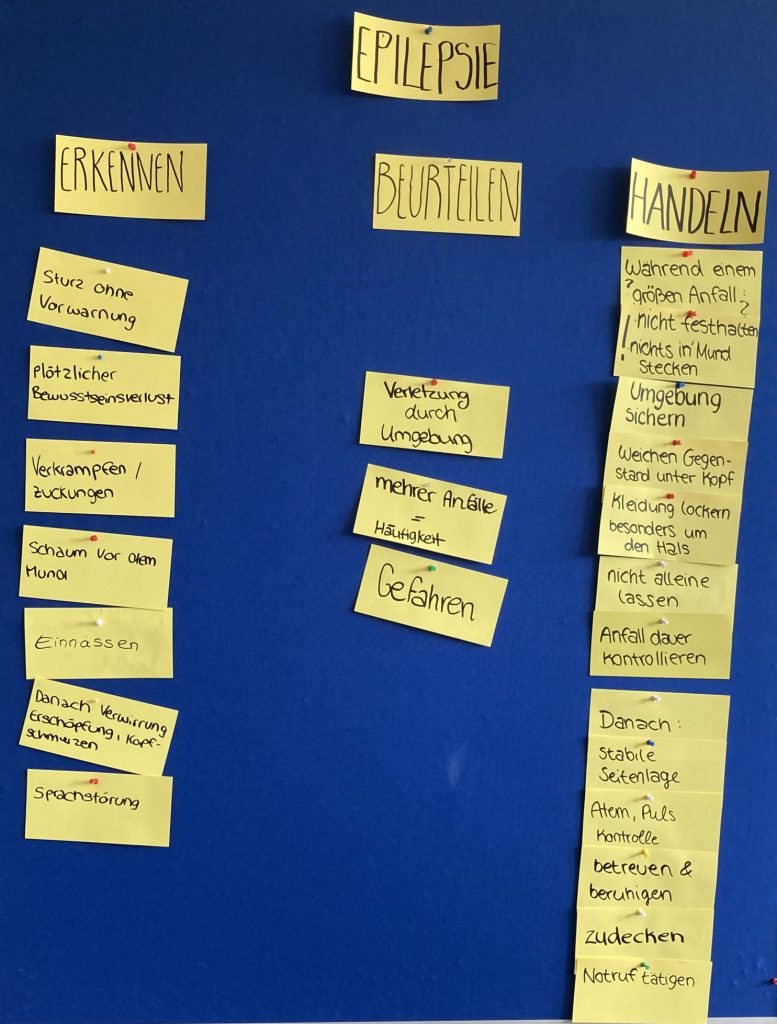 EPILEPSIE
ERKENNEN
Sturz ohne
Vorwarnung
Plötzlicher
Bewusstseinsverlust
Verkrampfen /
zuckungen
Schaum vor dem
Mund
Einnässen
Danach Verwirrung
Erschöpfung, Kopf-
schmerzen
Sprachstörung
BEURTEILEN
Verletzung
durch
Umgebung
mehrer Anfälle
=
Häufigkeit
Gefahren
HANDELN
Während einem
? größen Anfall: ?
! nicht festhalten
nichts in' Mund
Stecken
Umgebung
sichern
Weichen Gegen-
stand unter Kopf
Kleidung lockern
besonders um
den Hals
nicht alleine
lassen
Anfall dauer
kontrollieren
Danach:
stabile
Seitenlage
Atem, Puls
Kontrolle
betreuen &
beruhigen
zudecken
Notruf tätigen